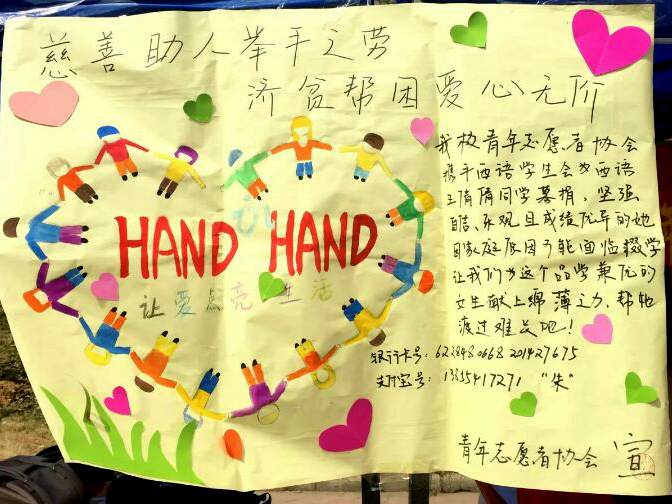 慈善助人举手之劳
济贫帮困爱心无价
HAND IN HAND
让爱点亮生活
我校青年志愿者协会
携手西语学生会为西语
王倩倩同学募捐，坚强
乐观且成绩优异的她
因家庭原因可能面临辍学
让我们为这个品学兼优的
女生献上绵薄之力，帮她
渡过难关吧！
银行卡号：622848 0668 201427675
支付宝号：13855417271 "朱"
青年志愿者协会 宣